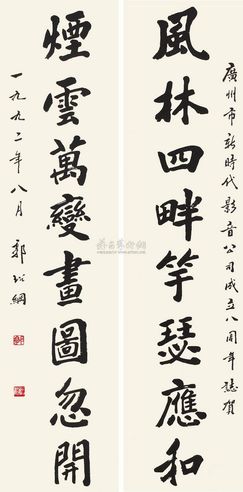 廣州市新時代影音公司成立八周年誌賀
風林四畔竽瑟應和
煙雲萬變畫圖忽開
一九九二年八月 郭紹綱